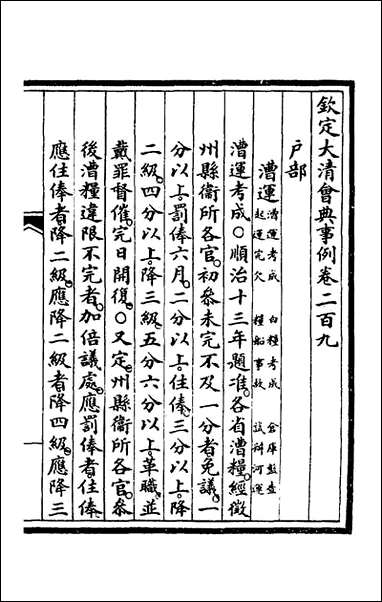 欽定大清會典事例卷二百九
戶部
漕運漕運考成 白糧考成 倉庫監查
起運完欠 糧船事故 議辦河運
漕運考成○順治十三年題准。各省漕糧。經徵
州縣衞所各官。初參未完不及一分者免議。一
分以上。罰俸六月。二分以上。住俸。三分以上。降
二級。四分以上。降三級。五分六分以上。革職。並
戴罪督催。完日開復。○又定。州縣衞所各官。參
後漕糧違限不完者。加倍議處。應罰俸者住俸。
應住俸者降二級。應降二級者降四級。應降三